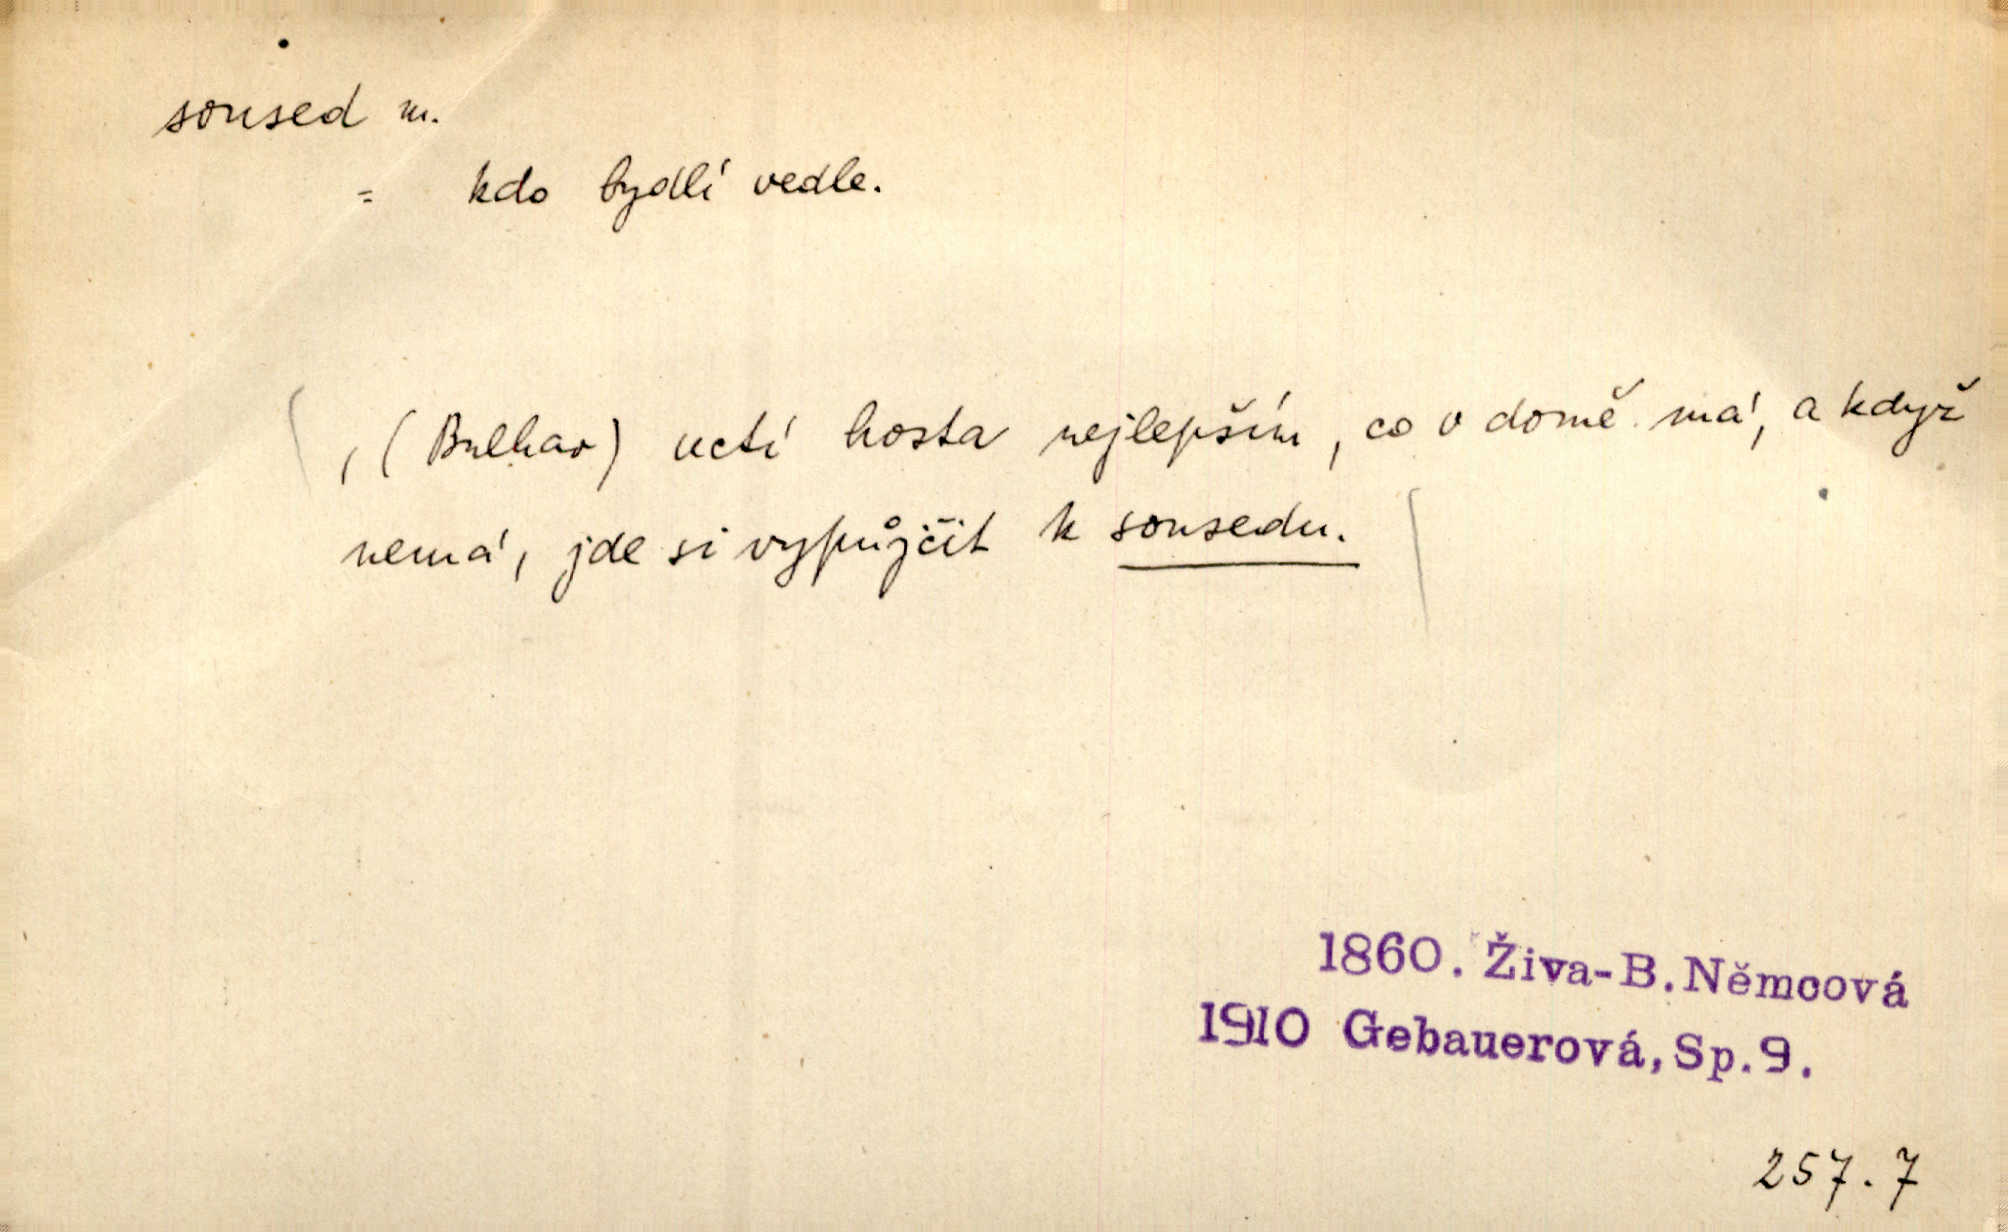 soused m.
= kdo bydlí vedle.
, (Bulhar) uctí hosta nejlepším, co v domě má, a když
nemá, jde si vypůjčit k sousedu.
1860. Živa-B.Němcová
1910 Gebauerová, Sp.9.
257.7